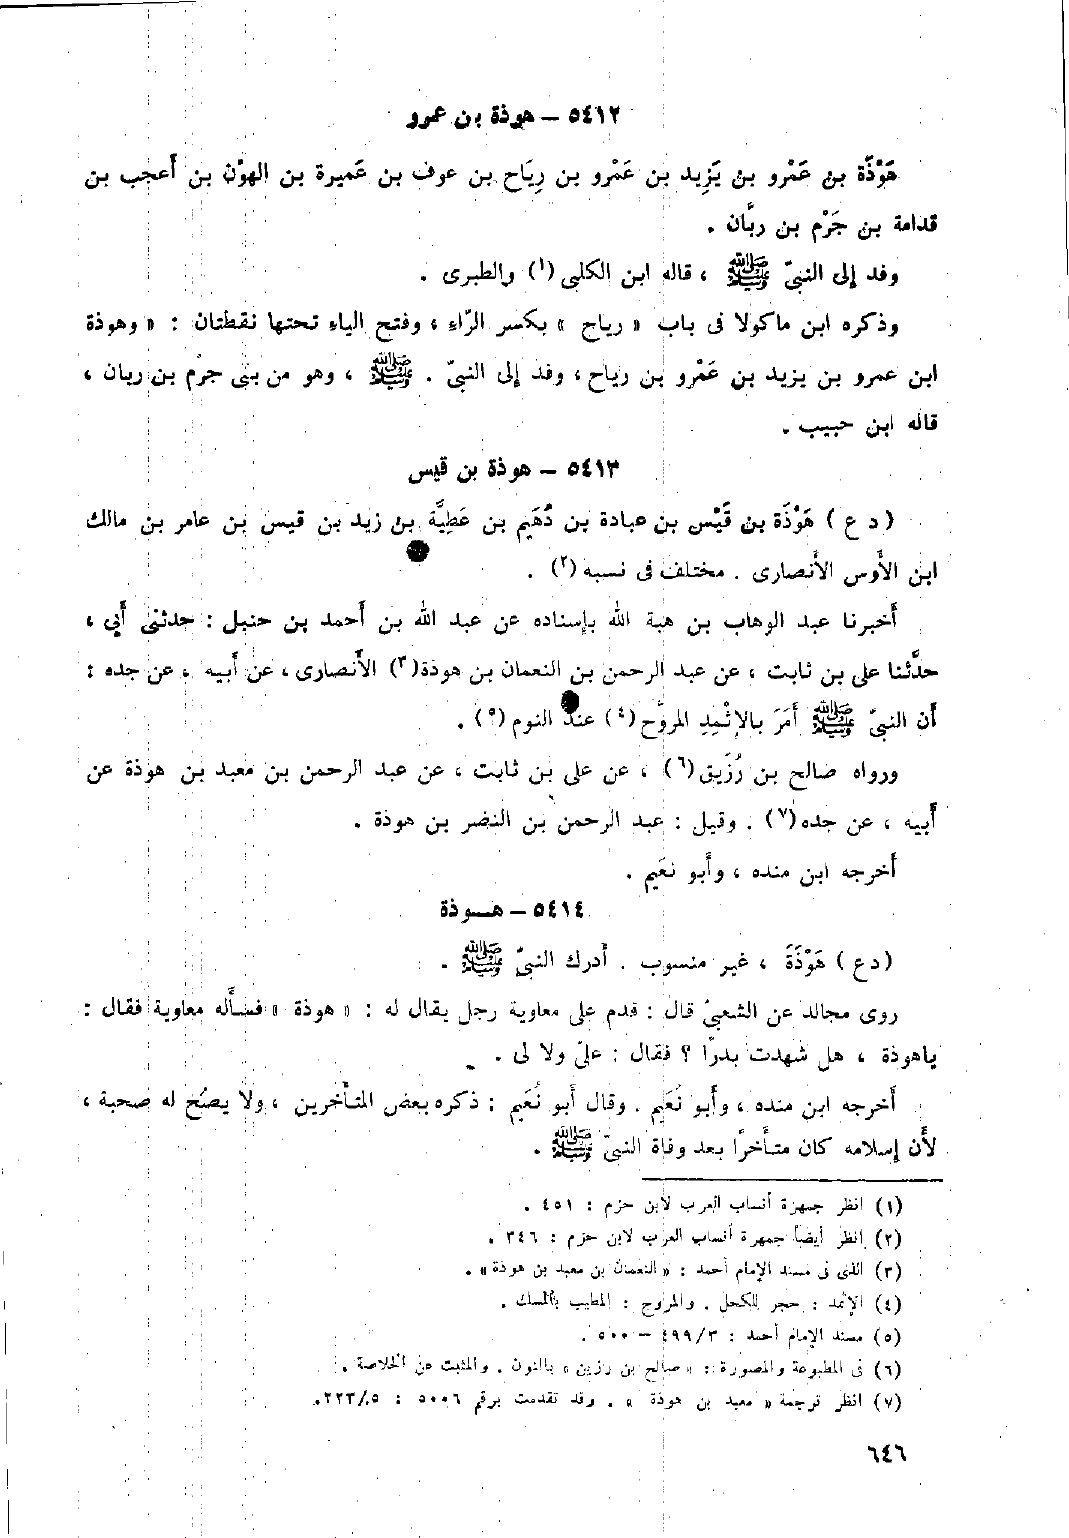 ٥٤١٢ – هوذة بن عمرو
هَوْذَة بن عَمْرو بن يَزِيد بن عَمْرو بن رِيَاح بن عوف بن عَميرة بن الهوْن بن أَعجب بن
قدامة بن جَرْم بن ربَّان .
وفد إلى النبيّ ﷺ ، قاله ابن الكلبى (١) والطبرى .
وذكره ابن ماكولا فى باب « رياح » بكسر الرّاءِ ، وفتح الياءِ تحتها نقطتان : « وهوذة
ابن عمرو بن يزيد بن عَمْرو بن رياح ، وفد إلى النبيّ . ﷺ ، وهو من بنى جرْم بن ربان ،
قاله ابن حبيب .
٥٤١٣ – هوذة بن قيس
( د ع ) هَوْذَة بن قَيْس بن عبادة بن دُهَيم بن عَطِيَّة بن زيد بن قيس بن عامر بن مالك
ابن الأَوس الأَنصارى . مختلف فى نسبه (٢) .
أَخبرنا عبد الوهاب بن هبة الله بإسناده عن عبد الله بن أَحمد بن حنبل : حدثنى أَبي ،
حدَّثنا على بن ثابت ، عن عبد الرحمن بن النعمان بن هوذة(٣) الأَنصارى ، عن أَبيه ، عن جده :
أَن النبيّ ﷺ أَمَرَ بالإِثْمِدِ المروَّح (٤) عند النوم (٥) .
ورواه صالح بن رُزَيق(٦) ، عن على بن ثابت ، عن عبد الرحمن بن معبد بن هوذة عن
أَبيه ، عن جده(٧) . وقيل : عبد الرحمن بن النضر بن هوذة .
أَخرجه ابن منده ، وأَبو نعَيم .
٥٤١٤ – هــوذة
( دع ) هَوْذَةَ ، غير منسوب . أَدرك النبيّ ﷺ .
روى مجالد عن الشعبىّ قال : قدم على معاوية رجل يقال له : « هوذة » فسأَله معاوية فقال :
ياهوذة ، هل شهدت بدرًا ؟ فقال : علىّ ولا لى .
أَخرجه ابن منده ، وأَبو نَعَيم . وقال أَبو نُعَيم : ذكره بعض المتأَخرين ، ولا يصحّ له صحبة ،
لأَن إسلامه كان متأَخرًا بعد وفاة النبيّ ﷺ .
(١) انظر جمهرة أنساب العرب لابن حزم : ٤٥١ .
(٢) انظر أيضاً جمهرة أنساب العرب لابن حزم : ٣٤٦ .
(٣) الذى فى مسند الإمام أحمد : « النعمان بن معبد بن هوذة » .
(٤) الإثمد : حجر للكحل . والمروح : المطيب بالمسك .
(٥) مسند الإمام أحمد : ٤٩٩/٣ – ٥٠٠ .
(٦) فى المطبوعة والمصورة : « صالح بن رزين » بالنون . والمثبت عن الخلاصة .
(٧) انظر ترجمة « معبد بن هوذة » . وقد تقدمت برقم ٥٠٠٦ : ٢٢٣/٥ .
٦٤٦